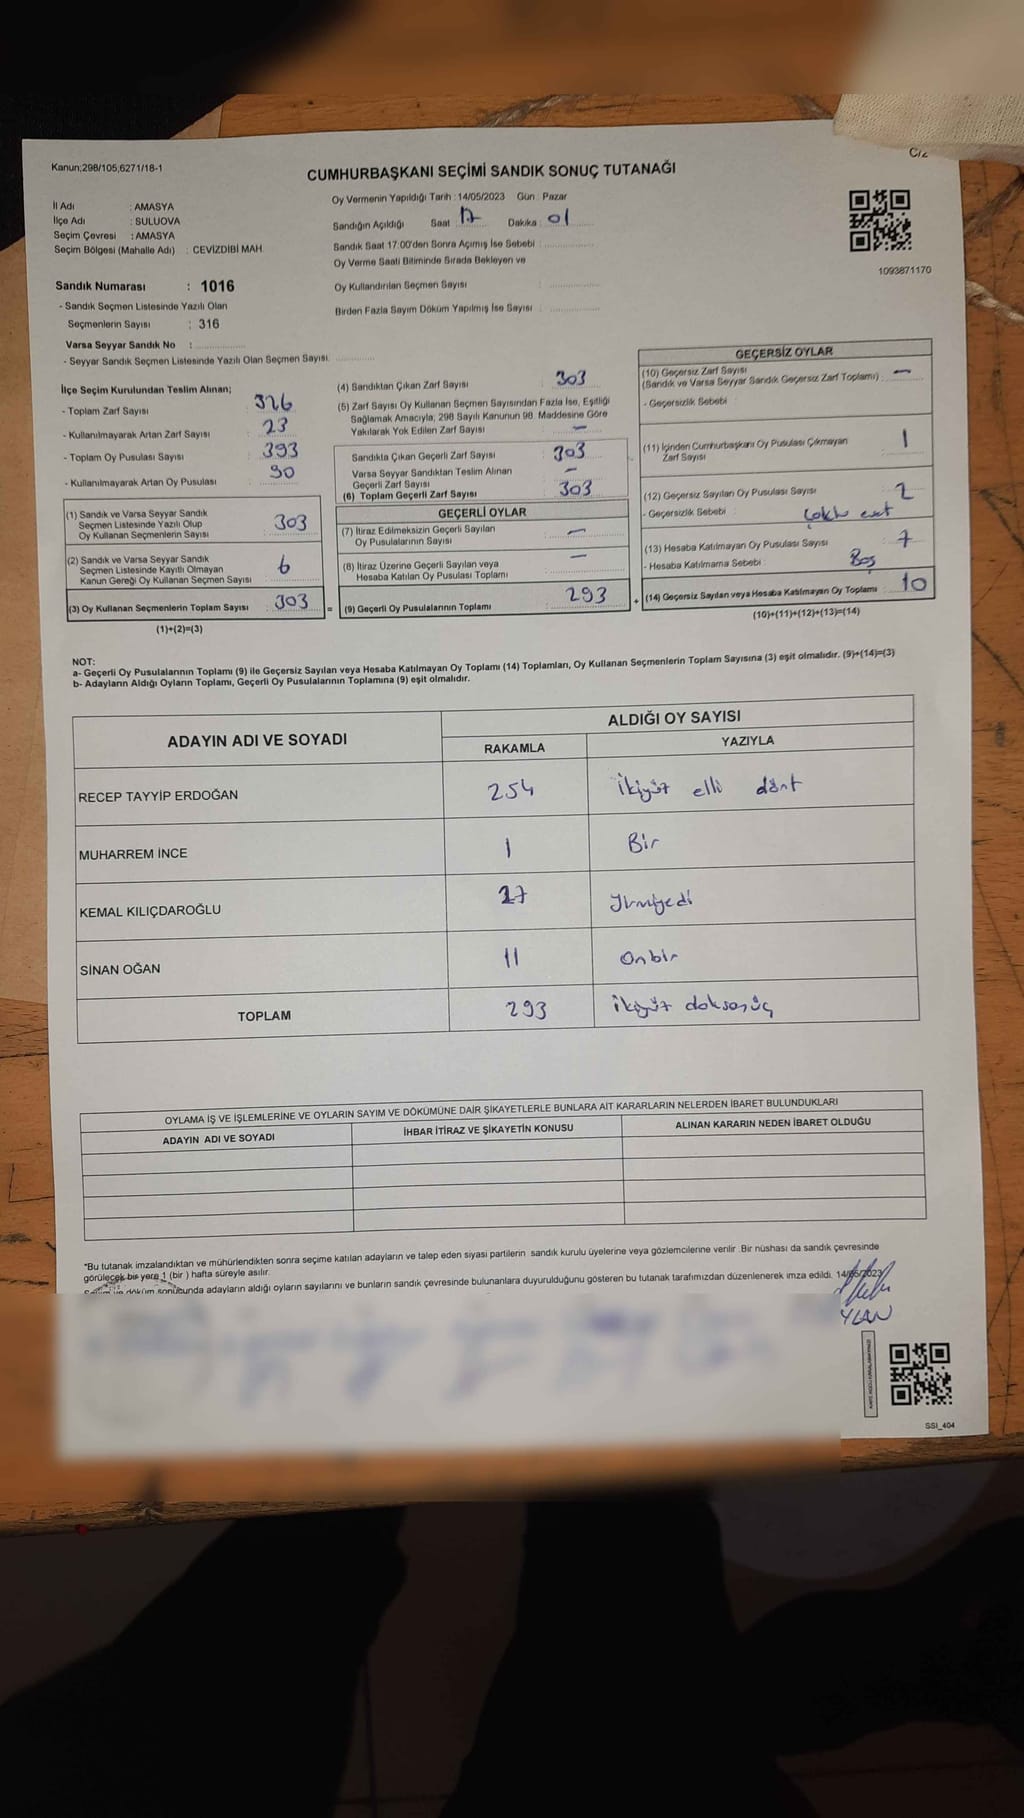 Kanun;298/105,6271/18-1
C/2
CUMHURBAŞKANI SEÇİMİ SANDIK SONUÇ TUTANAĞI
İl Adı : AMASYA
İlçe Adı : SULUOVA
Seçim Çevresi : AMASYA
Seçim Bölgesi (Mahalle Adı) : CEVİZDİBİ MAH.
Oy Vermenin Yapıldığı Tarih : 14/05/2023 Gün : Pazar
Sandığın Açıldığı Saat 17 Dakika : 01
Sandık Saat 17:00'den Sonra Açımış İse Sebebi :
Oy Verme Saati Bitiminde Sırada Bekleyen ve
Oy Kullandırılan Seçmen Sayısı :
Birden Fazla Sayım Döküm Yapılmış İse Sayısı :
1093871170
Sandık Numarası : 1016
- Sandık Seçmen Listesinde Yazılı Olan
Seçmenlerin Sayısı : 316
Varsa Seyyar Sandık No :
- Seyyar Sandık Seçmen Listesinde Yazılı Olan Seçmen Sayısı.
İlçe Seçim Kurulundan Teslim Alınan;
- Toplam Zarf Sayısı 326
- Kullanılmayarak Artan Zarf Sayısı 23
- Toplam Oy Pusulası Sayısı 393
- Kullanılmayarak Artan Oy Pusulası 90
(1) Sandık ve Varsa Seyyar Sandık
Seçmen Listesinde Yazılı Olup
Oy Kullanan Seçmenlerin Sayısı 303
(2) Sandık ve Varsa Seyyar Sandık
Seçmen Listesinde Kayıtlı Olmayan
Kanun Gereği Oy Kullanan Seçmen Sayısı 6
(3) Oy Kullanan Seçmenlerin Toplam Sayısı 303 =
(1)+(2)=(3)
(4) Sandıktan Çıkan Zarf Sayısı 303
(5) Zarf Sayısı Oy Kullanan Seçmen Sayısından Fazla İse, Eşitliği
Sağlamak Amacıyla; 298 Sayılı Kanunun 98. Maddesine Göre
Yakılarak Yok Edilen Zarf Sayısı –
Sandıkta Çıkan Geçerli Zarf Sayısı 303
Varsa Seyyar Sandıktan Teslim Alınan
Geçerli Zarf Sayısı –
(6) Toplam Geçerli Zarf Sayısı 303
GEÇERLİ OYLAR
(7) İtiraz Edilmeksizin Geçerli Sayılan
Oy Pusulalarının Sayısı –
(8) İtiraz Üzerine Geçerli Sayılan veya
Hesaba Katılan Oy Pusulası Toplamı –
(9) Geçerli Oy Pusulalarının Toplamı 293 +
GEÇERSİZ OYLAR
(10) Geçersiz Zarf Sayısı
(Sandık ve Varsa Seyyar Sandık Geçersiz Zarf Toplamı) : –
- Geçersizlik Sebebi :
(11) İçinden Cumhurbaşkanı Oy Pusulası Çıkmayan
Zarf Sayısı 1
(12) Geçersiz Sayılan Oy Pusulası Sayısı 2
- Geçersizlik Sebebi :
(13) Hesaba Katılmayan Oy Pusulası Sayısı 7
- Hesaba Katılmama Sebebi : Boş
(14) Geçersiz Sayılan veya Hesaba Katılmayan Oy Toplamı 10
(10)+(11)+(12)+(13)=(14)
NOT:
a- Geçerli Oy Pusulalarının Toplamı (9) ile Geçersiz Sayılan veya Hesaba Katılmayan Oy Toplamı (14) Toplamları, Oy Kullanan Seçmenlerin Toplam Sayısına (3) eşit olmalıdır. (9)+(14)=(3)
b- Adayların Aldığı Oyların Toplamı, Geçerli Oy Pusulalarının Toplamına (9) eşit olmalıdır.
ADAYIN ADI VE SOYADI
ALDIĞI OY SAYISI
RAKAMLA YAZIYLA
RECEP TAYYİP ERDOĞAN 254 İkiyüz elli dört
MUHARREM İNCE 1 Bir
KEMAL KILIÇDAROĞLU 27 yirmiyedi
SİNAN OĞAN 11 Onbir
TOPLAM 293 ikiyüz doksanüç
OYLAMA İŞ VE İŞLEMLERİNE VE OYLARIN SAYIM VE DÖKÜMÜNE DAİR ŞİKAYETLERLE BUNLARA AİT KARARLARIN NELERDEN İBARET BULUNDUKLARI
ADAYIN ADI VE SOYADI İHBAR İTİRAZ VE ŞİKAYETİN KONUSU ALINAN KARARIN NEDEN İBARET OLDUĞU
*Bu tutanak imzalandıktan ve mühürlendikten sonra seçime katılan adayların ve talep eden siyasi partilerin sandık kurulu üyelerine veya gözlemcilerine verilir .Bir nüshası da sandık çevresinde
görülecek bir yere 1 (bir ) hafta süreyle asılır.
döküm sonucunda adayların aldığı oyların sayılarını ve bunların sandık çevresinde bulunanlara duyurulduğunu gösteren bu tutanak tarafımızdan düzenlenerek imza edildi. 14/05/2023
SSI_404